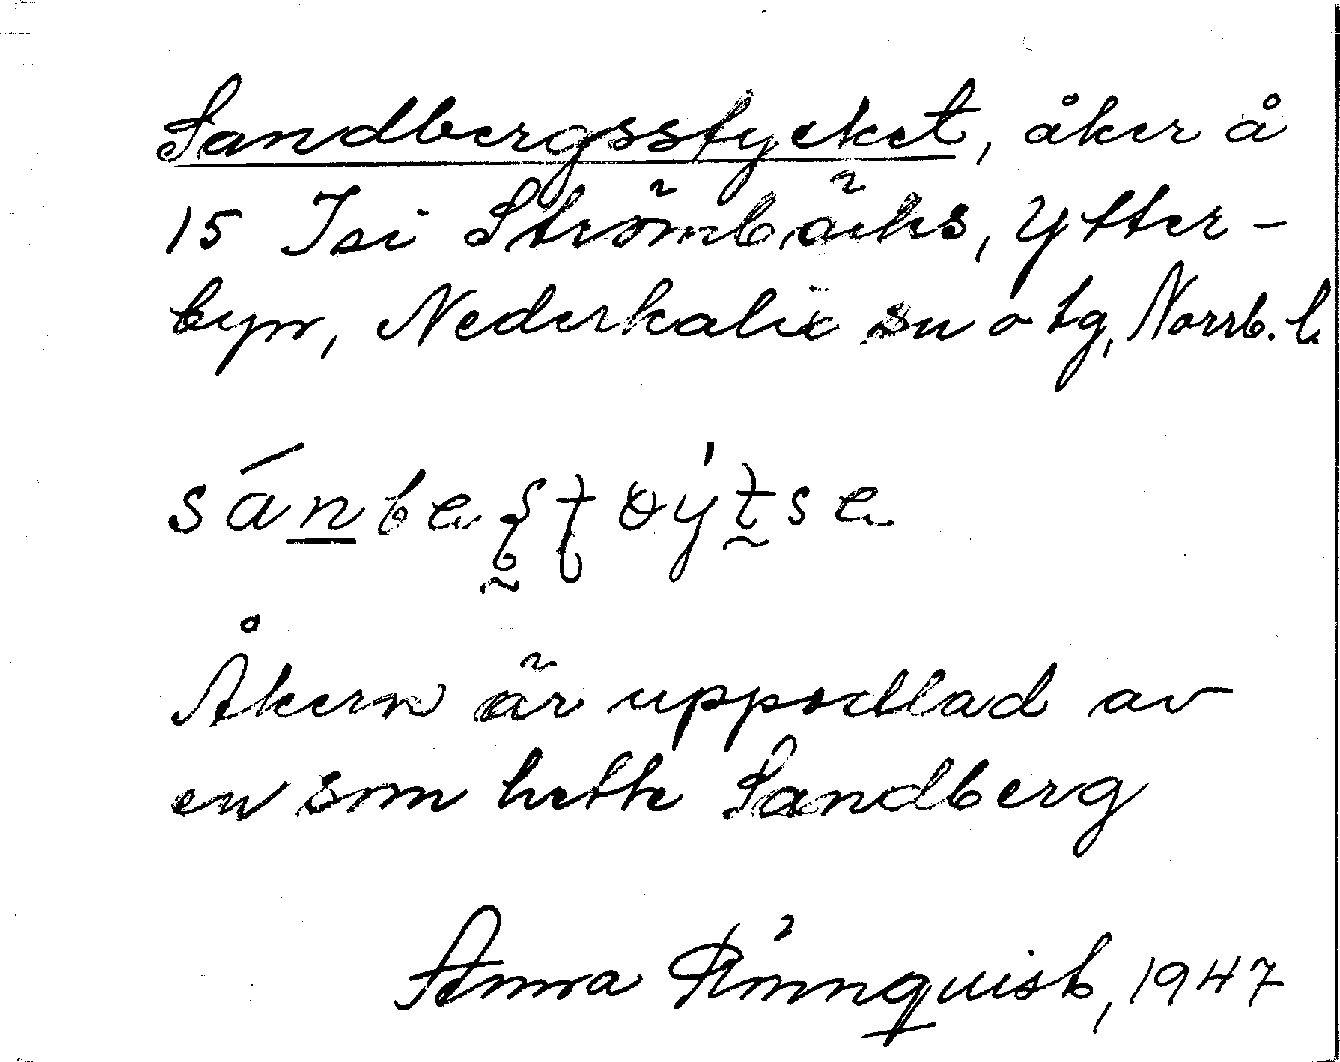 Sandbergsstycket, åker å
15 Isi Strömbäcks, Ytter-
byn, Nederkalix sn o tg, Norrb. l.
Åkern är uppodlad av
en som hette Sandberg
Anna Rönnquist, 1947